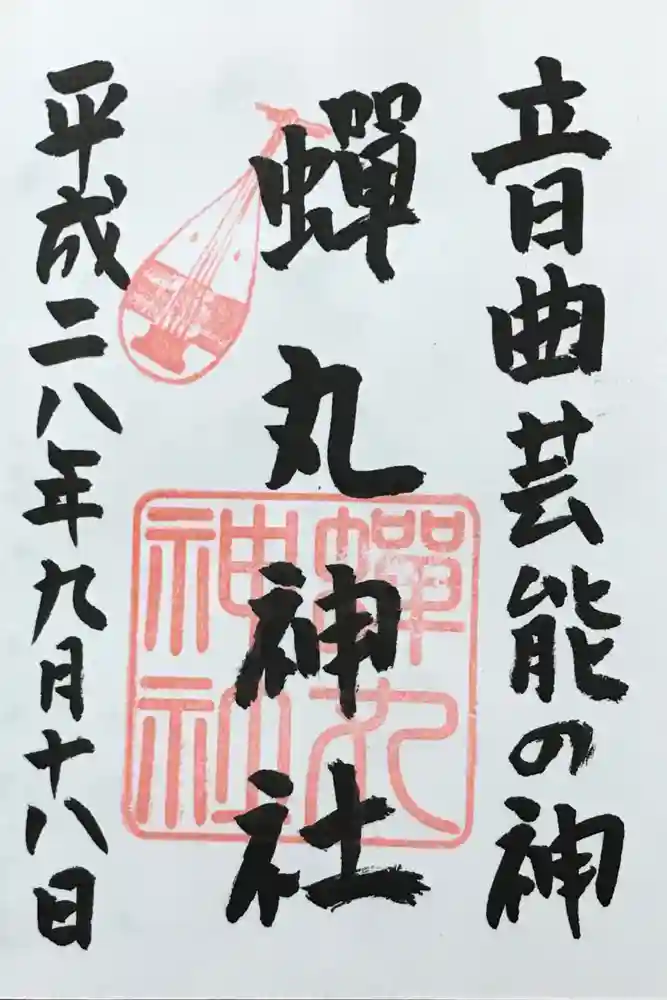 音曲芸能の神
蟬丸神社
平成二八年九月十八日
蟬丸
神社